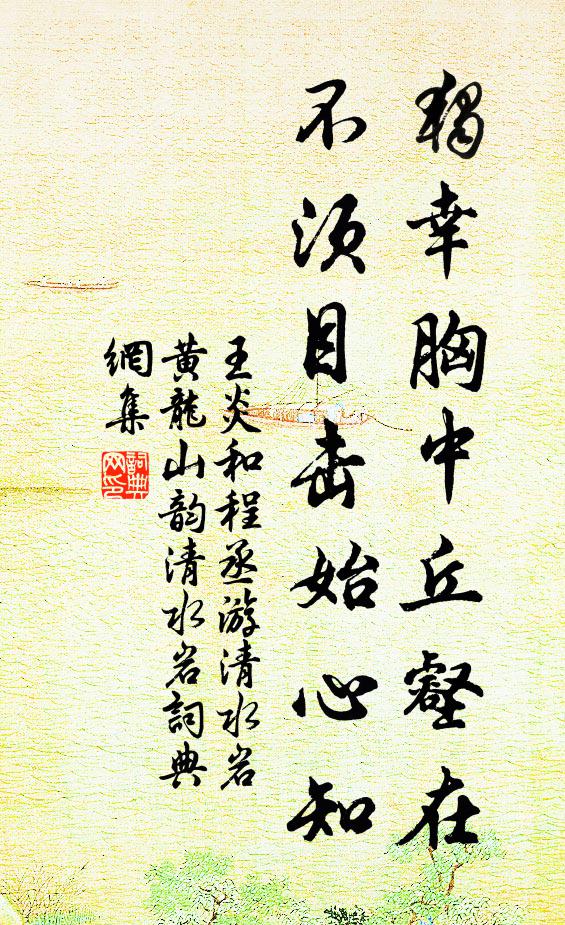 獨幸胸中丘壑在
不须目击始心知
王炎和程丞游清水岩
黄龍山韵清水岩詞典
網集
詞典
网印